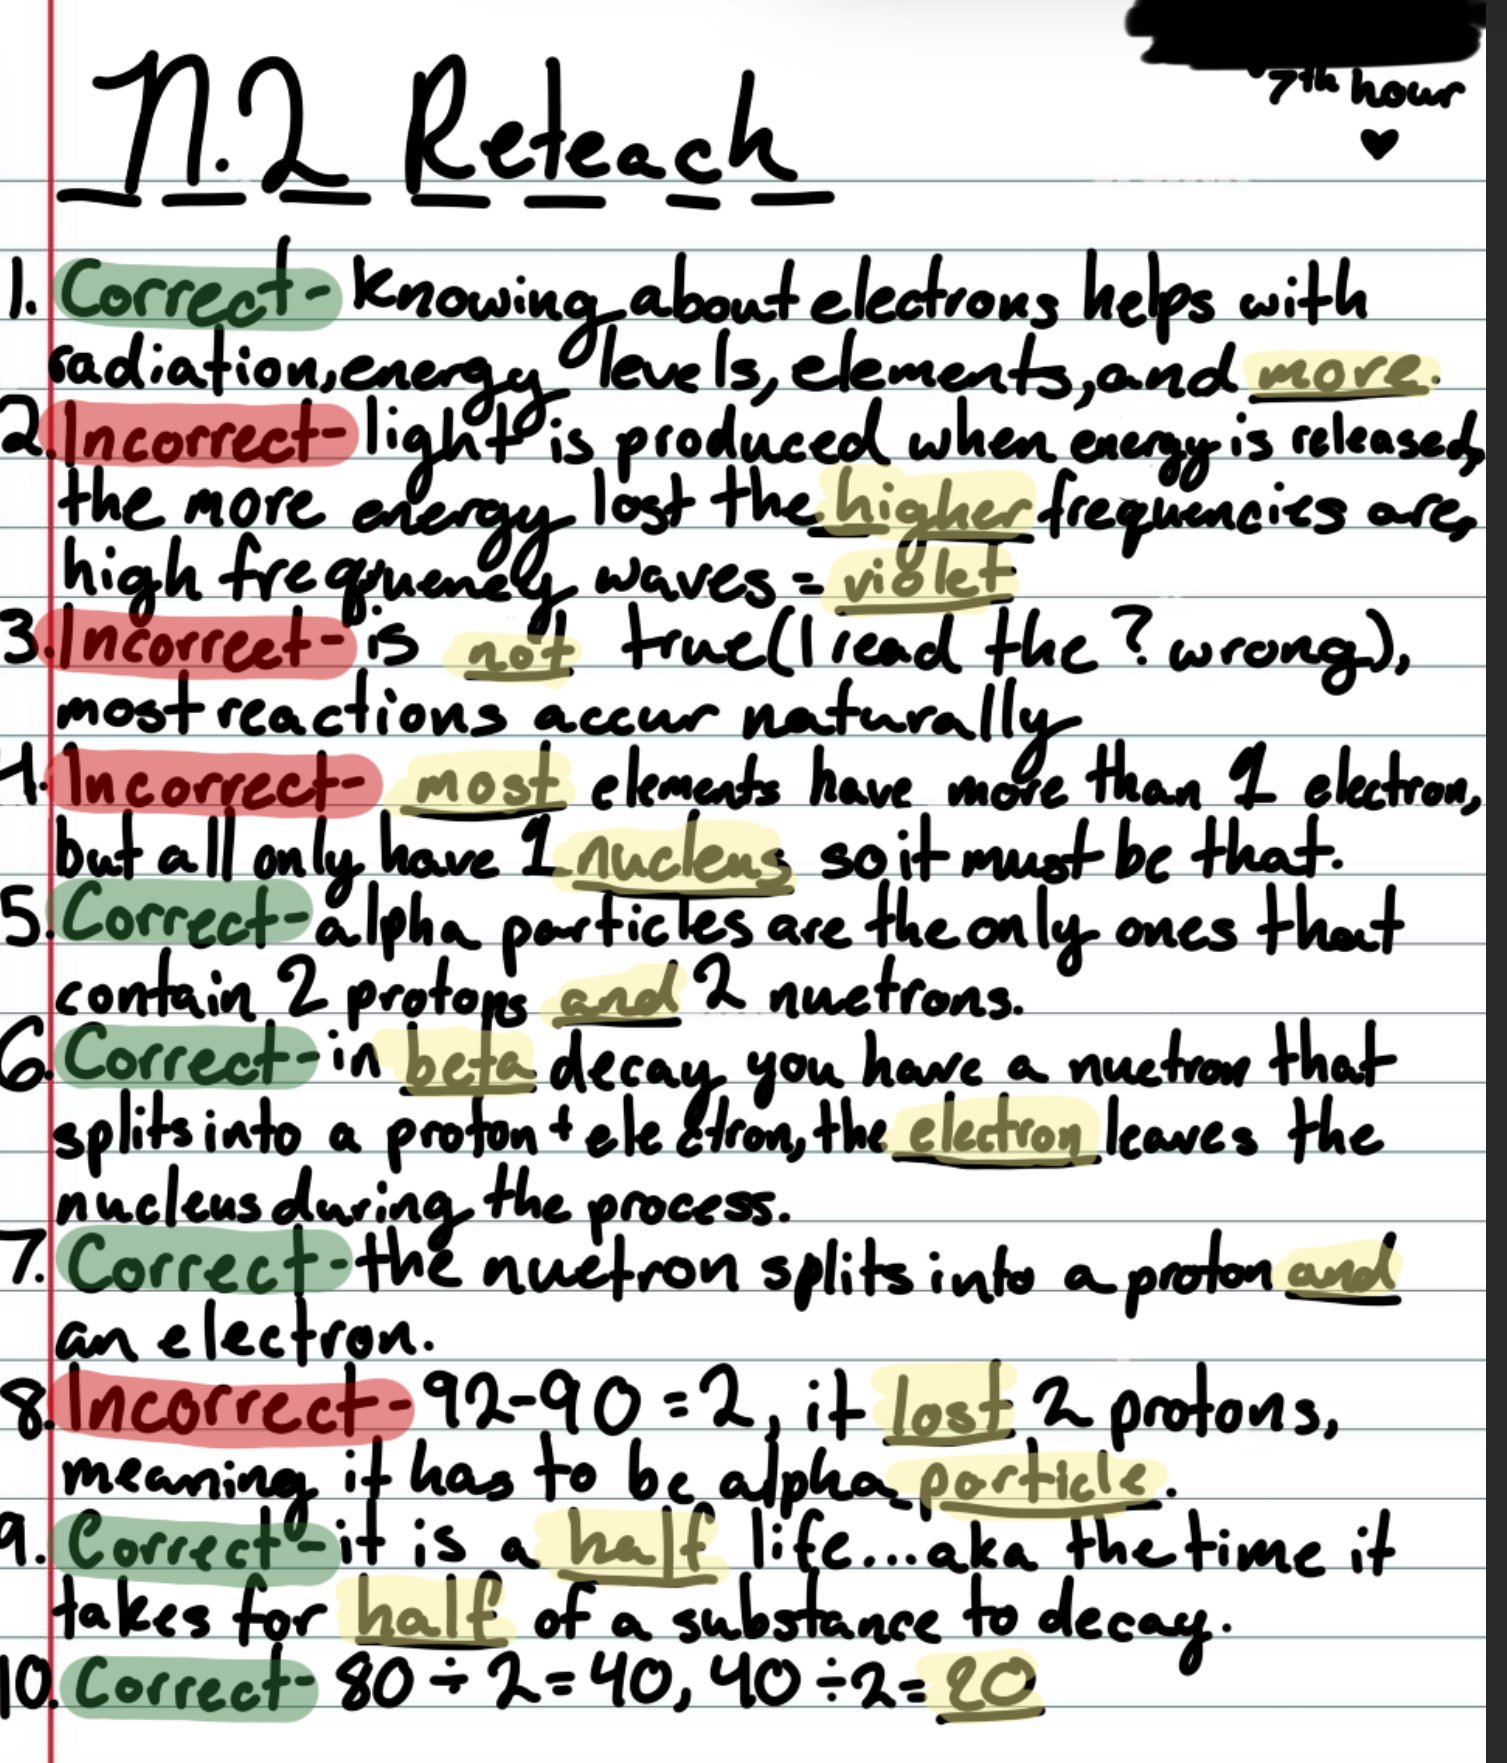 7th hour
N.2 Reteach
1. Correct- Knowing about electrons helps with
radiation, energy levels, elements, and more.
2. Incorrect- light is produced when energy is released,
the more energy lost the higher frequencies are,
high frequency waves = violet
3. Incorrect- is not true (I read the ? wrong),
most reactions accur naturally
4. Incorrect- most elements have more than 1 electron,
but all only have 1 nucleus so it must be that.
5. Correct- alpha particles are the only ones that
contain 2 protons and 2 nuetrons.
6. Correct- in beta decay you have a nuetron that
splits into a proton + electron, the electron leaves the
nucleus during the process.
7. Correct- the nuetron splits into a proton and
an electron.
8. Incorrect- 92-90 = 2, it lost 2 protons,
meaning it has to be alpha particle.
9. Correct- it is a half life... aka the time it
takes for half of a substance to decay.
10. Correct- 80 ÷ 2 = 40, 40 ÷ 2 = 20